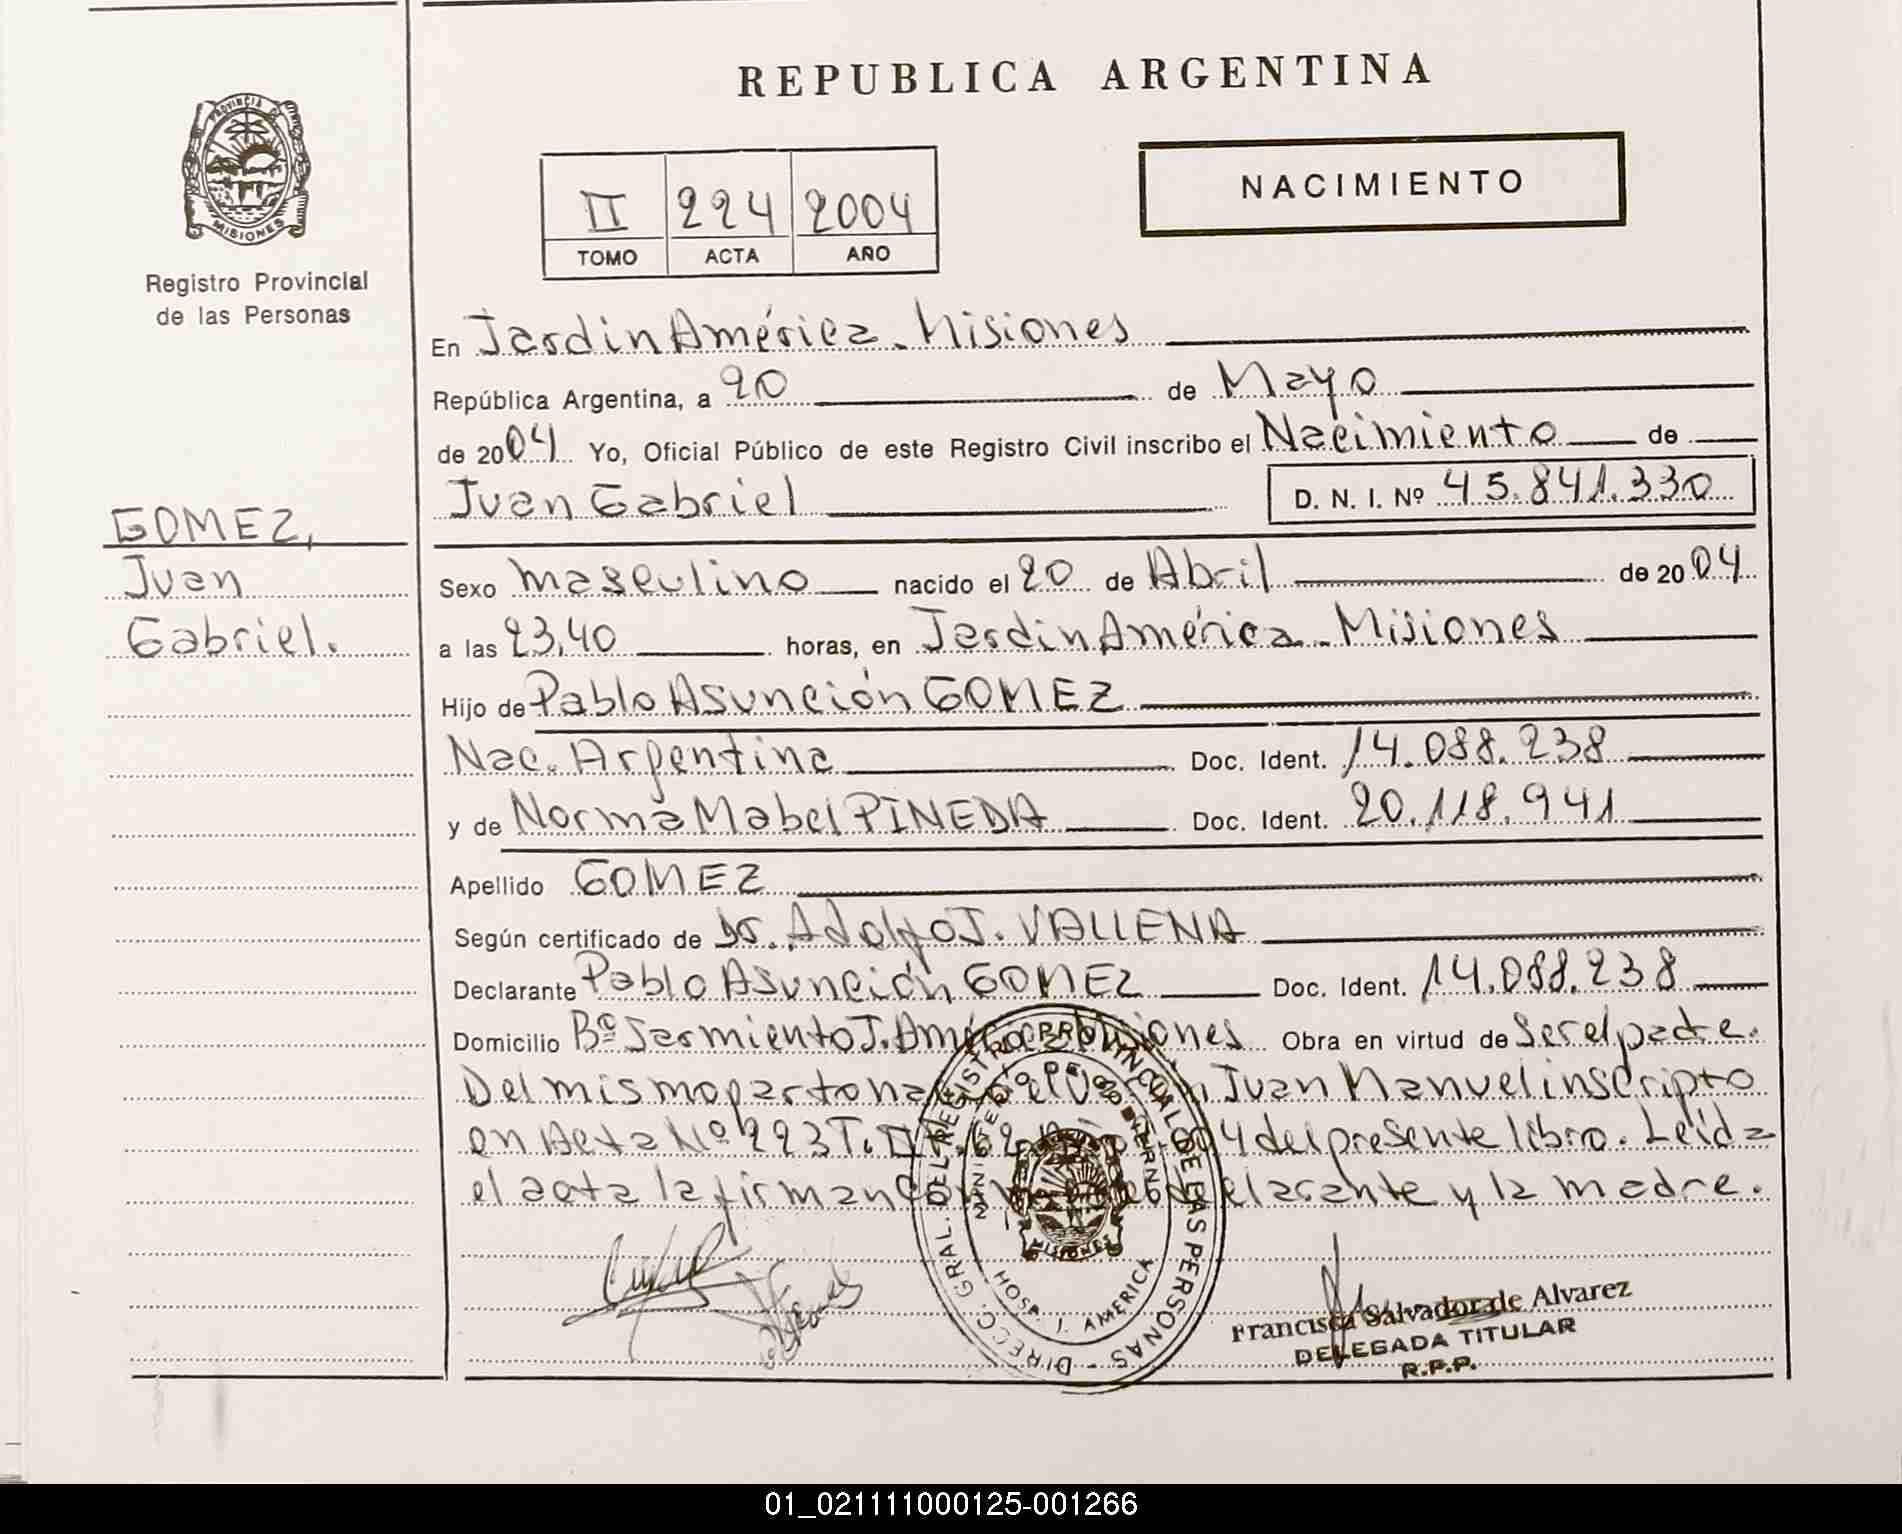 REPUBLICA ARGENTINA
PROVINCIA DE MISIONES
Registro Provincial
de las Personas
II 224 2004
TOMO ACTA AÑO
NACIMIENTO
En Jardin América - Misiones
República Argentina, a 20 de Mayo
de 2004 Yo, Oficial Público de este Registro Civil inscribo el Nacimiento de
Juan Gabriel D. N. I. Nº 45.841.330
GOMEZ,
Juan
Gabriel.
Sexo masculino nacido el 20 de Abril de 2004
a las 23,40 horas, en Jardin América - Misiones
Hijo de Pablo Asunción GOMEZ
Nac. Argentina Doc. Ident. 14.088.238
y de Norma Mabel PINEDA Doc. Ident. 20.118.941
Apellido GOMEZ
Según certificado de Dr. Adolfo J. VALLENA
Declarante Pablo Asunción GOMEZ Doc. Ident. 14.088.238
Domicilio Bº Sarmiento J. América Misiones Obra en virtud de Ser el padre.
Del mismo parto Juan Manuel inscripto
en Acta Nº 223 T. II del presente libro. Leída
el acta la firman y la madre.
DIRECC. GRAL. DEL REGISTRO PROVINCIAL DE LAS PERSONAS
MINISTERIO DE GOBIERNO
MISIONES
HOSP. J. AMERICA
Francisca Salvador de Alvarez
DELEGADA TITULAR
R.P.P.
01_021111000125-001266